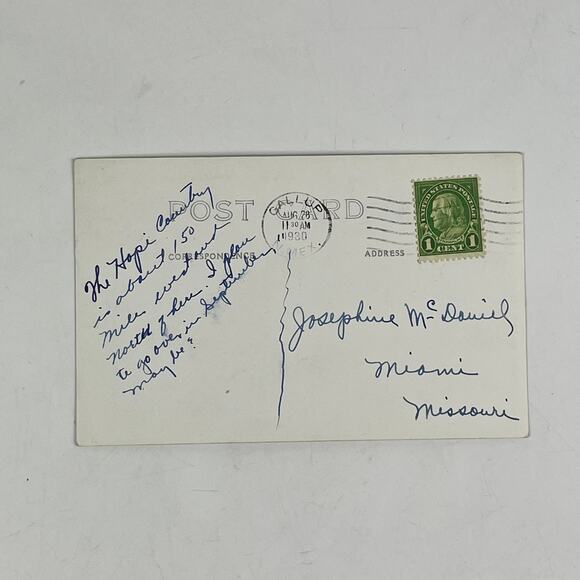 POST CARD
CORRESPONDENCE
ADDRESS
GALLUP
AUG 28
11 30 AM
1930
N.MEX.
UNITED STATES POSTAGE
1 CENT 1
The Hopi Country
is about 150
miles west and
north of here. I plan
to go over in September
maybe?
Josephine McDaniel
Miami
Missouri